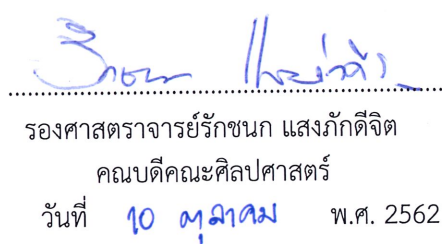 รองศาสตราจารย์รักชนก แสงภักดีจิต
คณบดีคณะศิลปศาสตร์
วันที่ 10 ตุลาคม พ.ศ. 2562